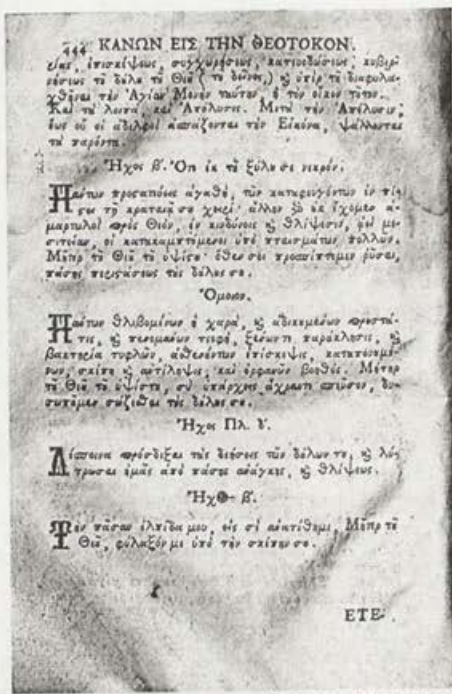 444 ΚΑΝΩΝ ΕΙΣ ΤΗΝ ΘΕΟΤΟΚΟΝ.
ζωῆς, ἐπισκέψεως, συγχωρήσεως, κατευοδώσεως, κυβερ-
νήσεως τῦ δύλυ τῦ Θεῦ (τῦ δεῖνος,) ϗ ὑπὲρ τῦ διαφυλα-
χθῆναι τὴν Ἁγίαν Μονὴν ταύτην, ἢ τὸν οἶκον τῦτον.
Καὶ τὰ λοιπὰ, καὶ Ἀπόλυσις. Μετὰ τὴν Ἀπόλυσιν,
ἕως ὗ οἱ ἀδελφοὶ ἀσπάζονται τὴν Εἰκόνα, ψάλλονται
τὰ παρόντα.
Ἦχος β'. Ὅτε ἐκ τῦ ξύλυ σε νεκρόν.
Πάντων προστατεύεις ἀγαθὴ, τῶν καταφευγόντων ἐν πί-
ςει τῇ κραταιᾷ συ χειρί· ἄλλην ὐκ ἔχομεν ἁ-
μαρτωλοὶ πρὸς Θεὸν, ἐν κινδύνοις ϗ θλίψεσιν, ἀεὶ με-
σιτείαν, οἱ κατακαμπτόμενοι ὑπὸ πταισμάτων πολλῶν.
Μῆτερ τῦ Θεῦ τῦ ὑψίςυ· ὅθεν σοι προσπίπτομεν ῥῦσαι,
πάσης περιςάσεως τὺς δύλυς συ.
Ὅμοιον.
Πάντων θλιβομένων ἡ χαρὰ, ϗ ἀδικυμένων προςά-
τις, ϗ πενομένων τροφὴ, ξένων τε παράκλησις, ϗ
βακτηρία τυφλῶν, ἀσθενύντων ἐπίσκεψις, καταπονυμέ-
νων, σκέπη ϗ ἀντίληψις, καὶ ὀρφανῶν βοηθός. Μῆτερ
τῦ Θεῦ τῦ ὑψίςυ, σὺ ὑπάρχεις ἄχραντε σπεῦσον, δυ-
σωπῦμεν σώζεσθαι τὺς δύλυς συ.
Ἦχος Πλ. δ'.
Δέσποινα πρόσδεξαι τὰς δεήσεις τῶν δύλων συ, ϗ λύ-
τρωσαι ἡμᾶς ἀπὸ πάσης ἀνάγκης, ϗ θλίψεως.
Ἦχος β'.
Τὴν πᾶσαν ἐλπίδα μυ, εἰς σὲ ἀνατίθημι, Μῆτερ τῦ
Θεῦ, φύλαξόν με ὑπὸ τὴν σκέπην συ.
ΕΤΕ-